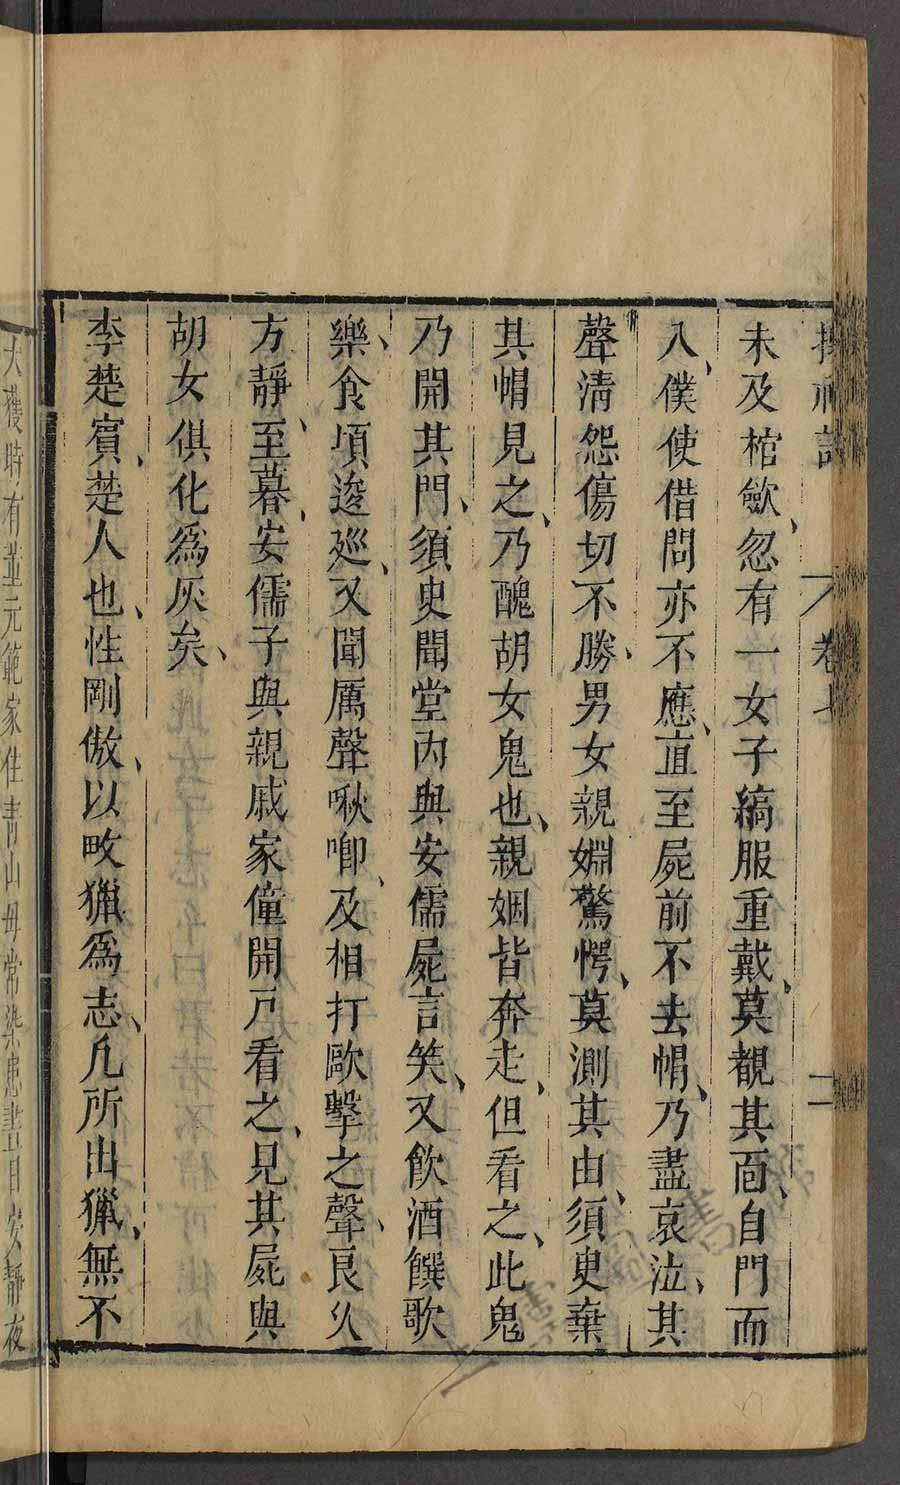 搜神記
卷七
二
未及棺歛、忽有一女子縞服重戴、莫覩其面、自門而
入、僕使借問亦不應、直至屍前不去帽、乃盡哀泣、其
聲清怨傷切不勝、男女親婣驚愕、莫測其由、須臾棄
其帽見之、乃醜胡女鬼也、親姻皆奔走、但看之、此鬼
乃開其門、須臾聞堂內與安儒屍言笑、又飲酒饌歌
樂、食頃逡巡、又聞厲聲啾唧、及相打毆擊之聲、良久
方靜、至暮、安儒子與親戚家僮開戶看之、見其屍與
胡女俱化爲灰矣、
李楚賓、楚人也、性剛傲、以畋獵爲志、凡所出獵、無不
大獲時有董元範家住青山母常染患晝日安靜夜